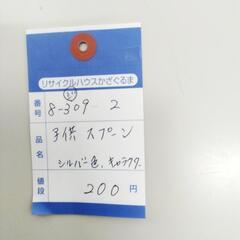 リサイクルハウスかざぐるま
番号 8-309 2
品名 子供 スプーン
シルバー色、キャラクター
値段 200円